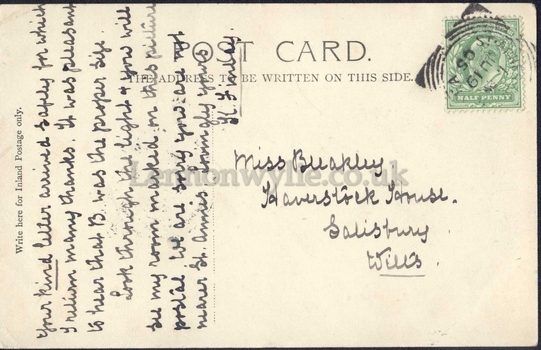 POST CARD.
THE ADDRESS TO BE WRITTEN ON THIS SIDE.
HALF PENNY
Write here for Inland Postage only.
Your kind letter arrived safely for which
I return many thanks. It was pleasant
to hear that B. was the proper age.
Look through the light & you will
see my room marked on this picture
postal. We are sorry you are not
nearer St. Annes. Lovingly yours
K. Finlay.
Miss Bleakley
Haverstock House.
Salisbury
Wilts.
Lennonwylie.co.uk